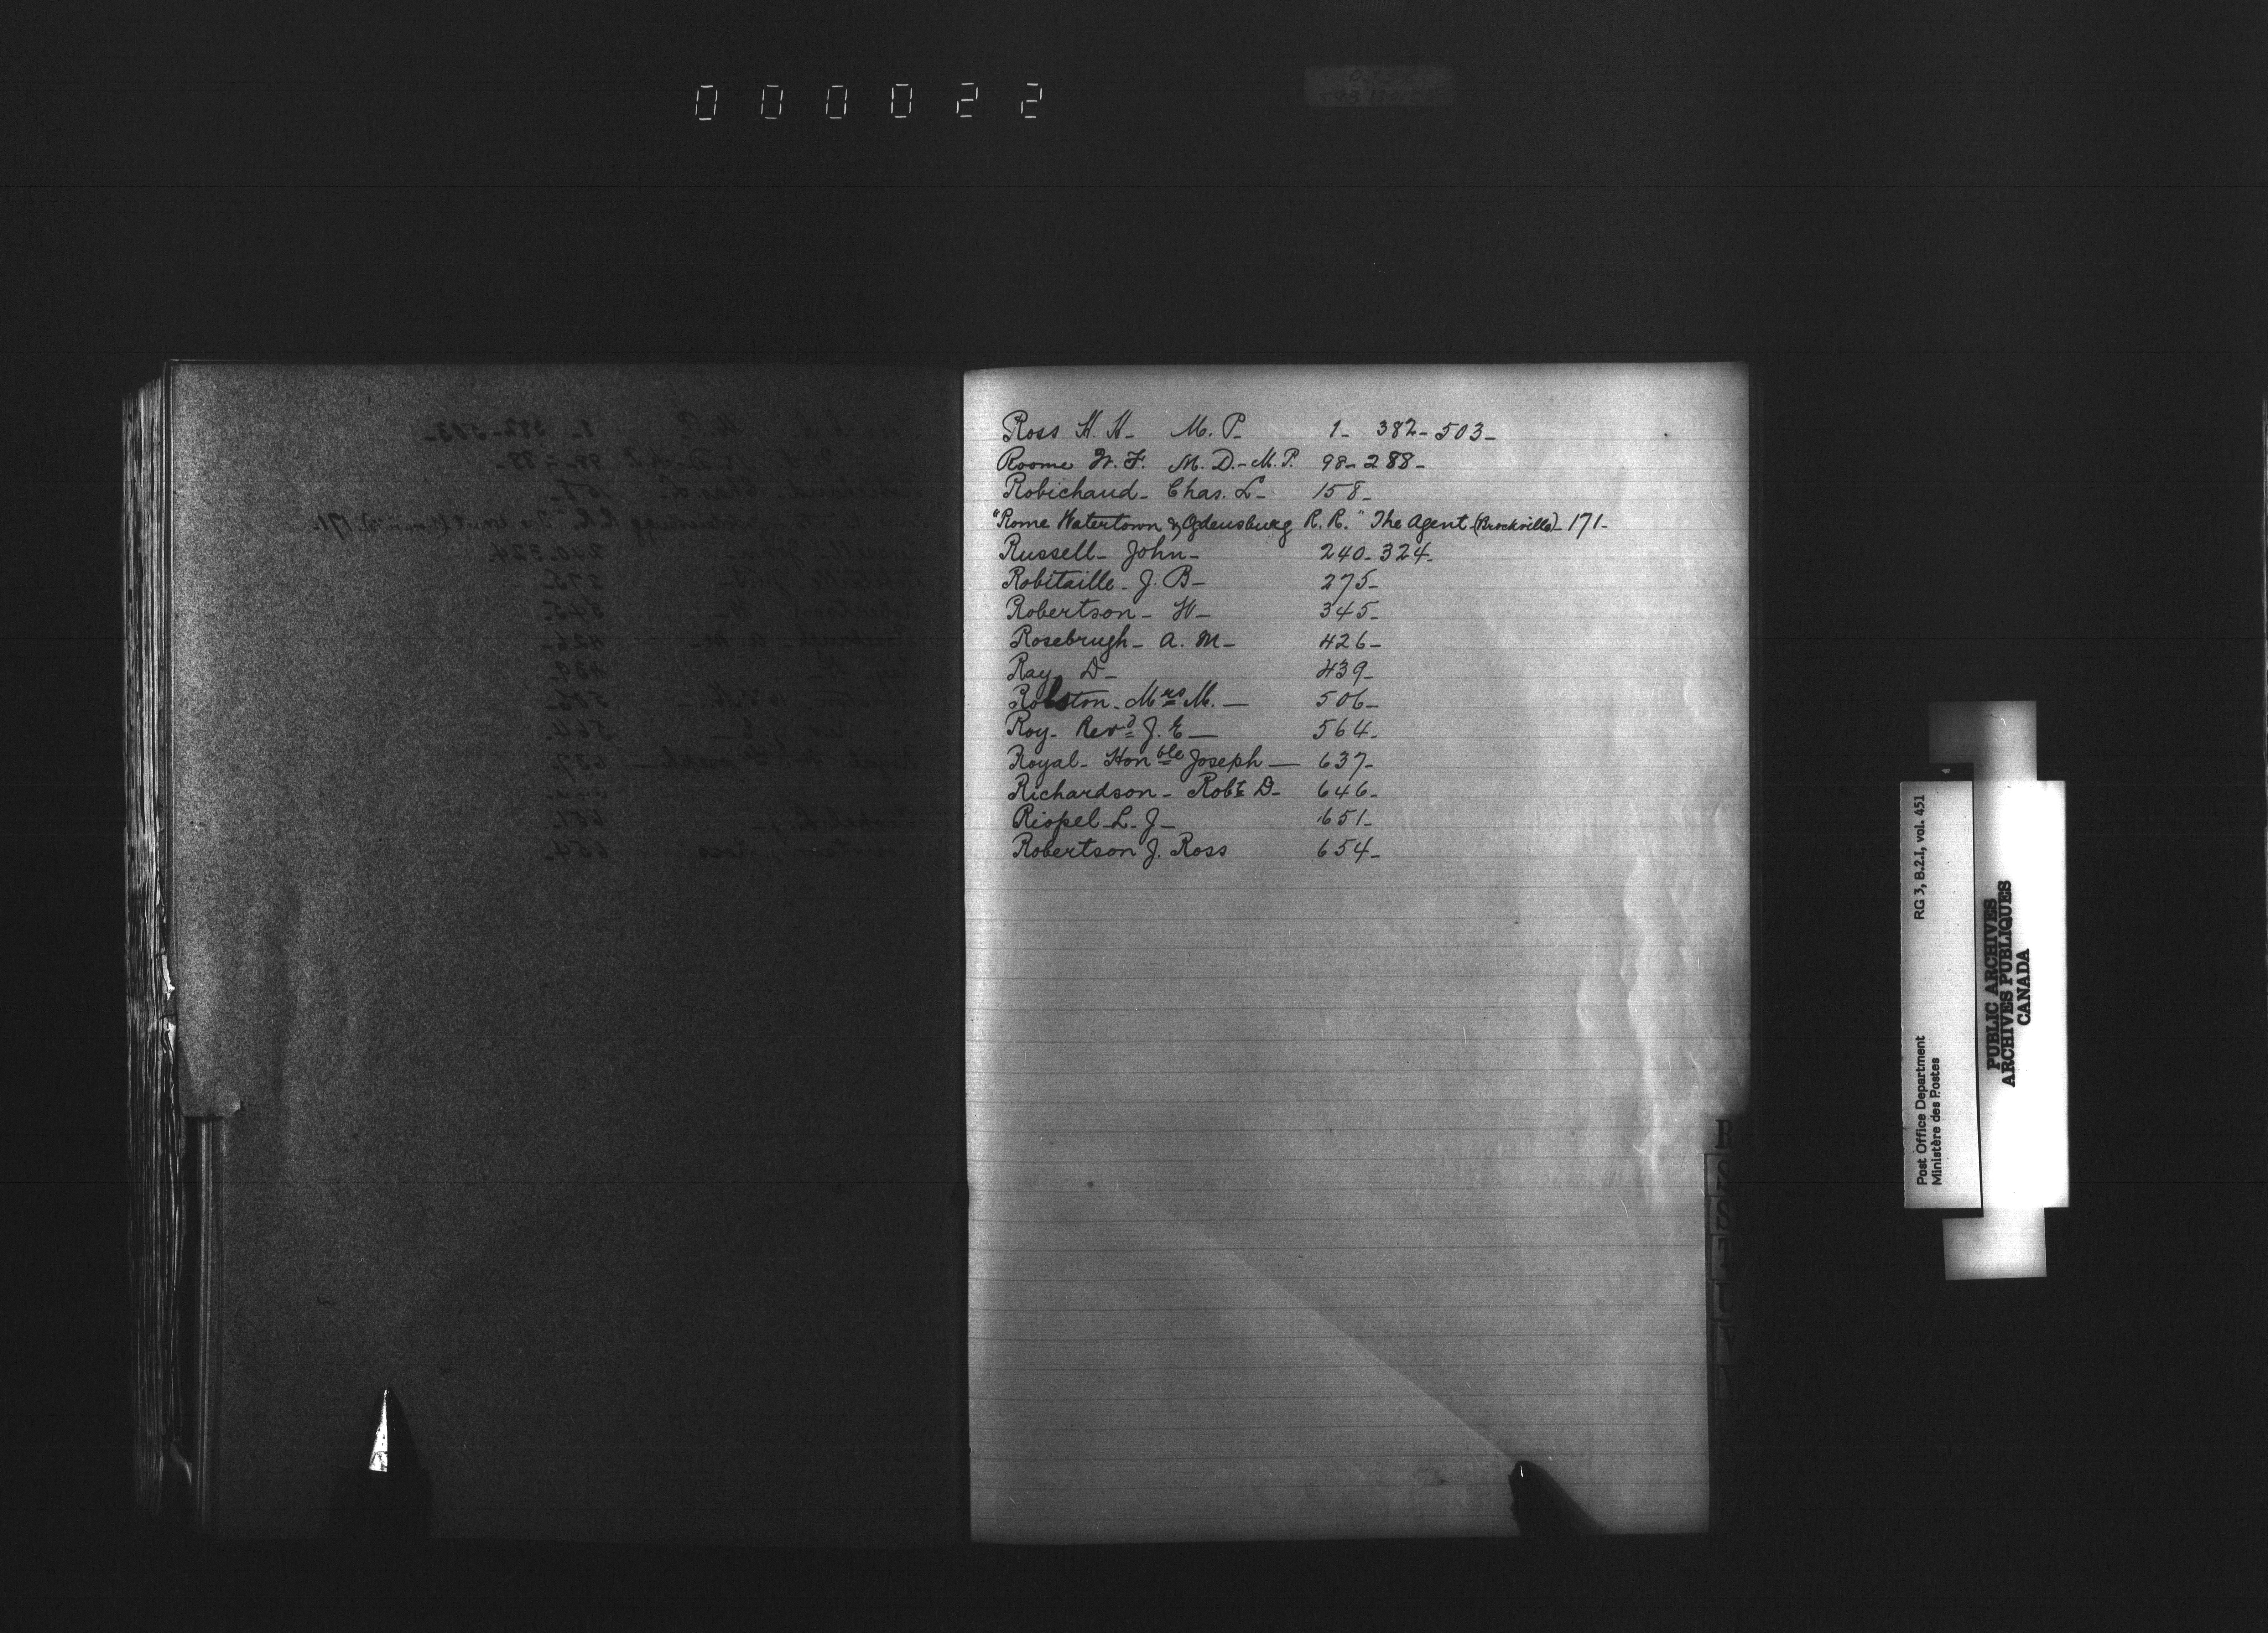 000022
Ross H. H- M. P- 1- 382- 503-
Roome W. F. M. D.- M. P. 98- 288-
Robichaud- Chas. L- 158-
"Rome Watertown & Ogdensburg R. R." The Agent (Brockville)- 171-
Russell- John- 240- 324-
Robitaille- J. B- 275-
Robertson- W- 345-
Rosebrugh- A. M- 426-
Ray D- 439-
Mrs M.— 506-
Roy- Revd J. E— 564-
Royal- Honble Joseph— 637-
Richardson- Robt D- 646-
Riopel- L. J- 651-
Robertson J. Ross 654-
R
S
T
U
V
Post Office Department RG 3, B.2.I, vol. 451
Ministère des Postes
PUBLIC ARCHIVES
ARCHIVES PUBLIQUES
CANADA